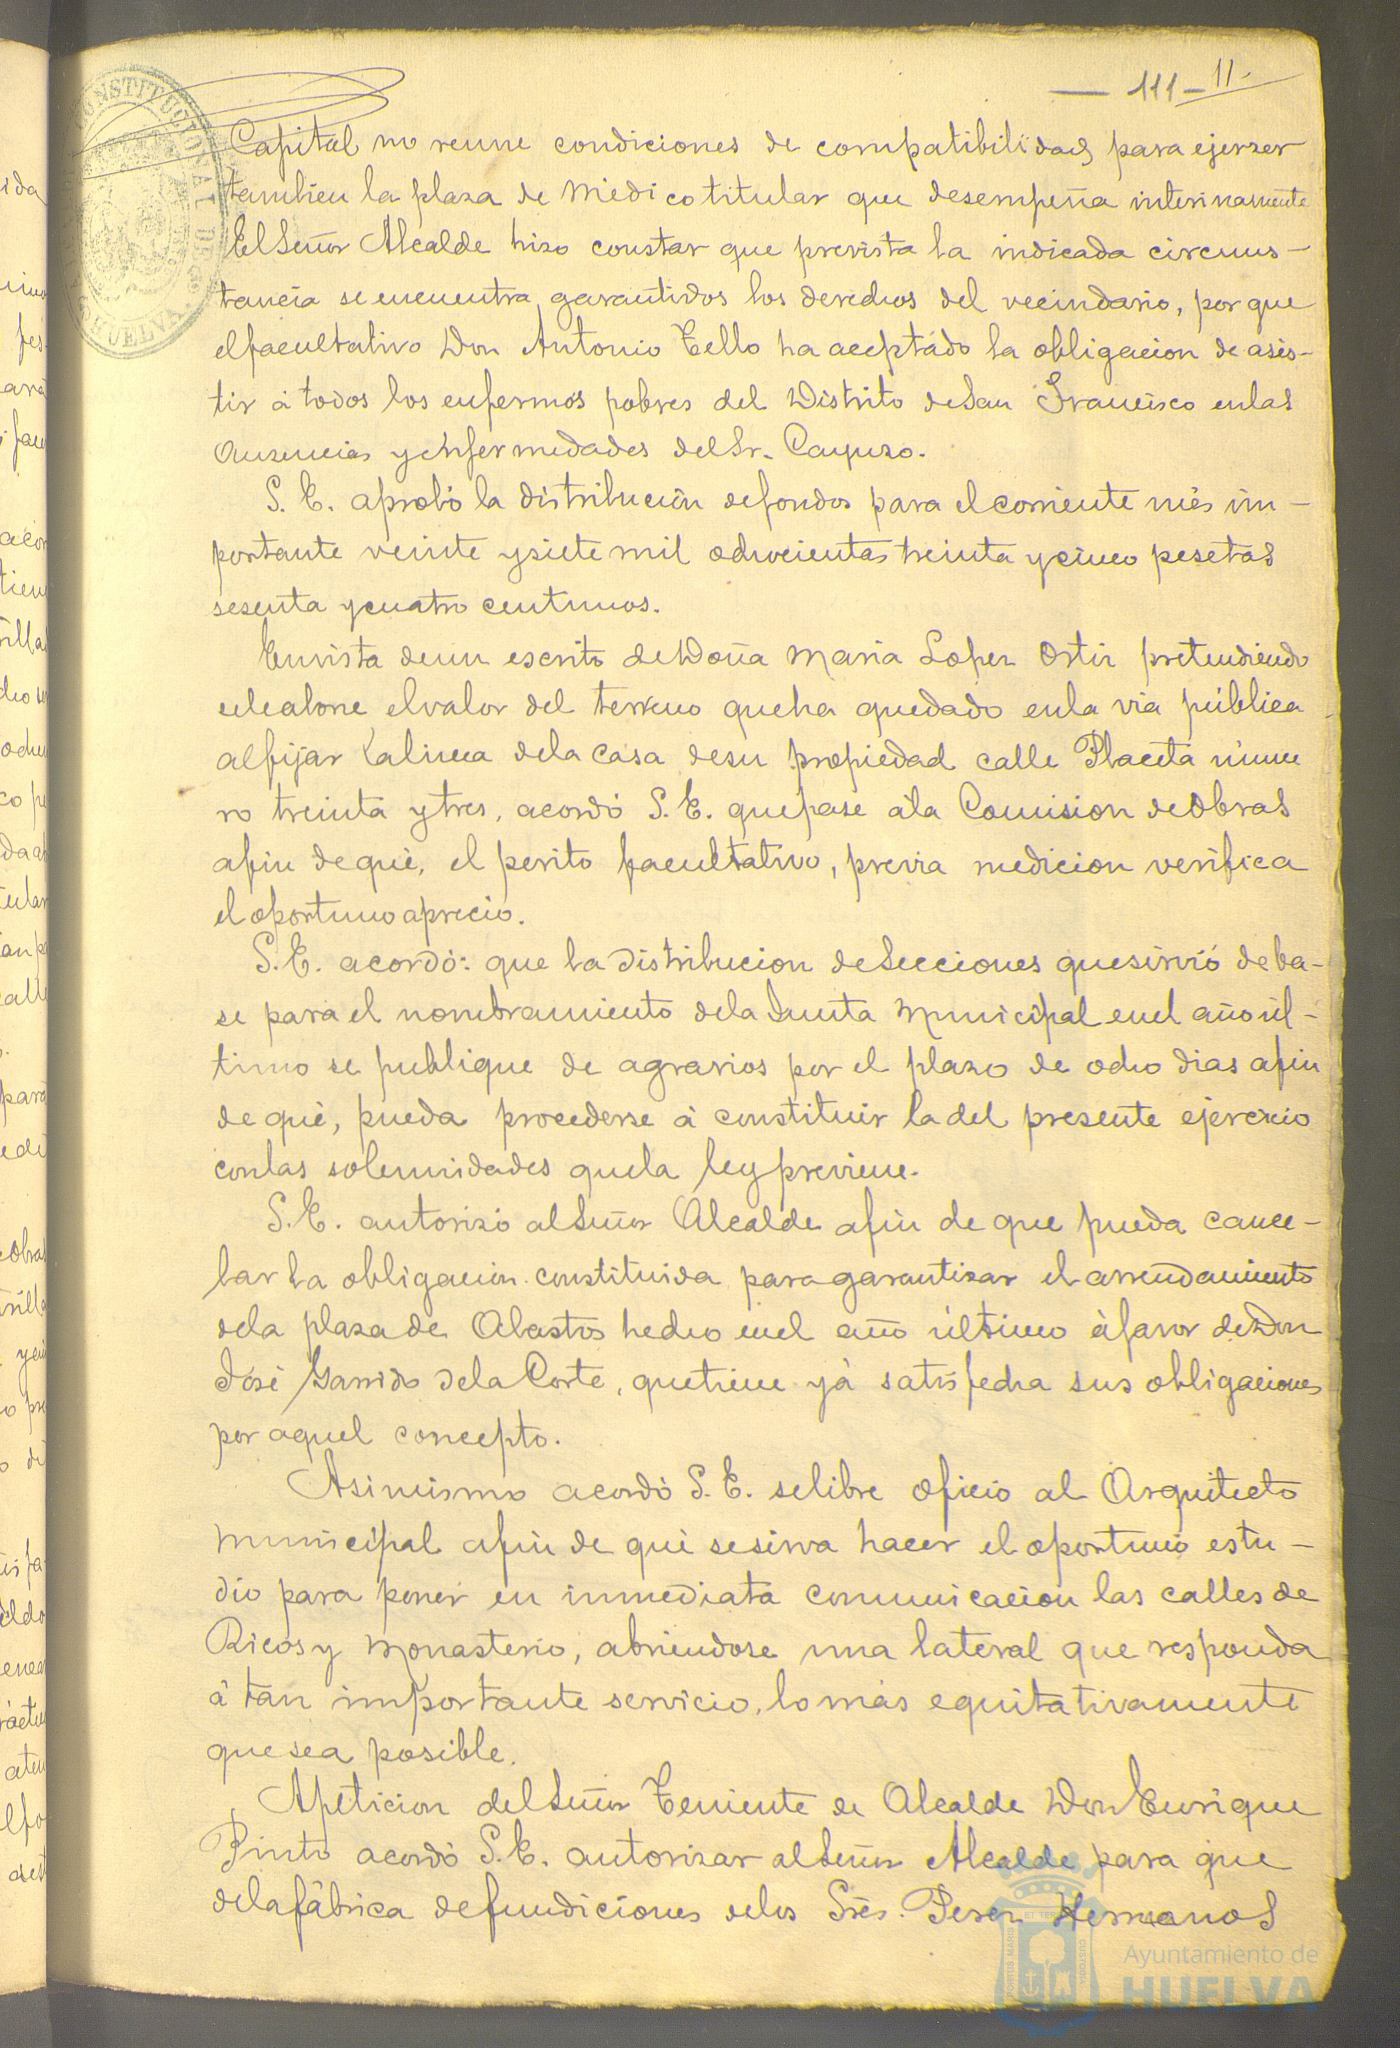 111 - 11.
Capital no reune condiciones de compatibilidad para ejerzer
tambien la plaza de Médico titular que desempeña interinamente
El Señor Alcalde hizo constar que prevista la indicada circuns-
tancia se encuentra garantidos los derechos del vecindario, por que
el facultativo Don Antonio Tello ha aceptado la obligacion de asis-
tir á todos los enfermos pobres del Distrito de San Francisco en las
Ausencias y enfermedades del Sr. Cayuso.
S. E. aprobó la distribución de fondos para el corriente més im-
portante veinte y siete mil ochocientas treinta y cinco pesetas
sesenta y cuatro centimos.
En vista de un escrito de Doña Maria Lopez Ortiz pretendiendo
se le abone el valor del terreno que ha quedado en la via pública
al fijar la linea de la casa de su propiedad calle Placeta núme
ro treinta y tres, acordó S. E. que pase á la Comision de Obras
afin de qué, el perito facultativo, previa medicion verifica
el oportuno aprecio.
S. E. acordó: que la distribucion de Secciones que sirvió de ba-
se para el nombramiento de la Junta Municipal en el año úl-
timo se publique de agravios por el plazo de ocho dias afin
de qué, pueda procederse á constituir la del presente ejercicio
con las solemnidades que la ley previene.
S. E. autorizó al Señor Alcalde afin de que pueda cance-
lar la obligacion constituida para garantizar el arrendamiento
de la plaza de Abastos hecho en el año último á favor de Don
José Garrido de la Corte, que tiene yá satisfecha sus obligaciones
por aquel concepto.
Asimismo acordó S. E. se libre oficio al Arquitecto
municipal afin de qué se sirva hacer el oportuno estu-
dio para poner en inmediata comunicacion las calles de
Ricos y Monasterio, abriendose una lateral que responda
á tan importante servicio, lo más equitativamente
que sea posible.
A peticion del Señor Teniente de Alcalde Don Enrique
Pinto acordó S. E. autorizar al Señor Alcalde para que
de la fábrica de fundiciones de los Srés. Perez Hermanos
CONSTITUCIONAL DE
HUELVA
PORTUS MARIS ET TERRAE CUSTODIA
Ayuntamiento de
HUELVA